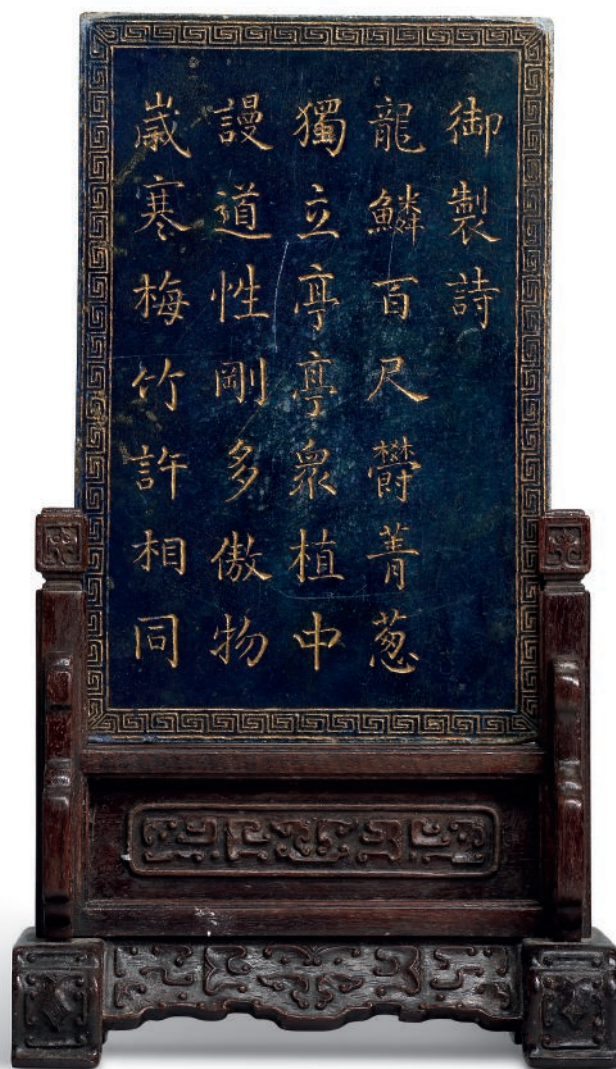 御製詩
龍鱗百尺欝菁葱
獨立亭亭衆植中
謾道性剛多傲物
嵗寒梅竹許相同